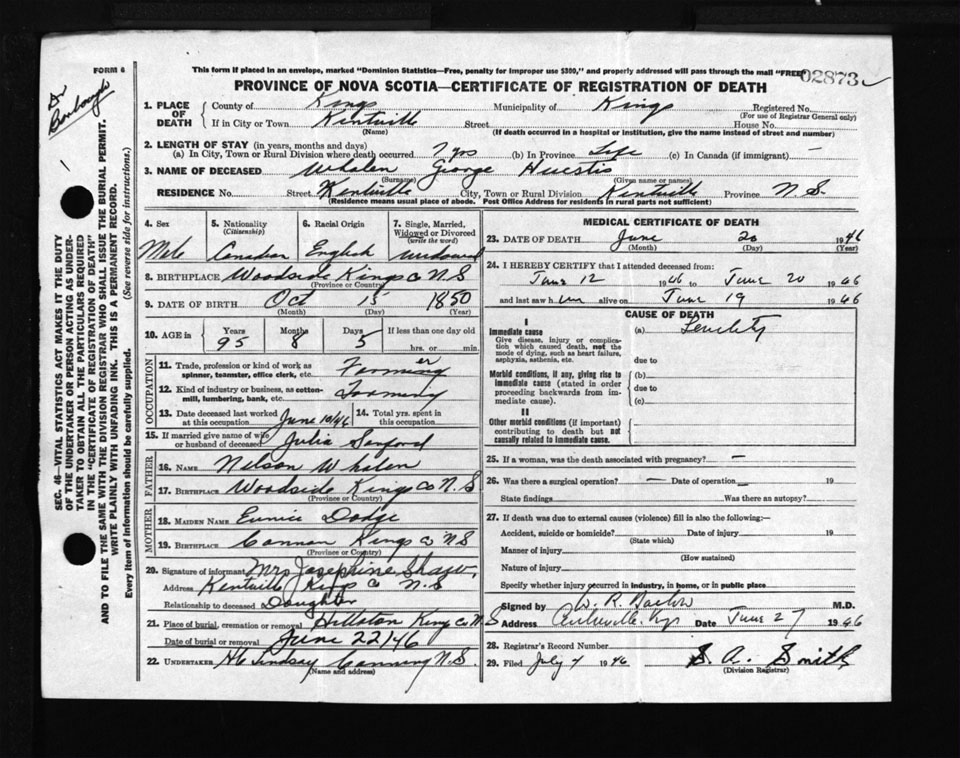 FORM 6
This form if placed in an envelope, marked "Dominion Statistics—Free, penalty for improper use $300," and properly addressed will pass through the mail "FREE"
02873
PROVINCE OF NOVA SCOTIA—CERTIFICATE OF REGISTRATION OF DEATH
Dr
SEC. 46—VITAL STATISTICS ACT MAKES IT THE DUTY
OF THE UNDERTAKER OR PERSON ACTING AS UNDER-
TAKER TO OBTAIN ALL THE PARTICULARS REQUIRED
IN THE "CERTIFICATE OF REGISTRATION OF DEATH"
AND TO FILE THE SAME WITH THE DIVISION REGISTRAR WHO SHALL ISSUE THE BURIAL PERMIT.
WRITE PLAINLY WITH UNFADING INK. THIS IS A PERMANENT RECORD.
Every item of information should be carefully supplied. (See reverse side for instructions.)
1. PLACE OF DEATH
County of Kings Municipality of Kings Registered No.
(For use of Registrar General only)
If in City or Town Kentville Street House No.
(Name) (If death occurred in a hospital or institution, give the name instead of street and number)
2. LENGTH OF STAY (in years, months and days)
(a) In City, Town or Rural Division where death occurred 7 yrs (b) In Province Life (c) In Canada (if immigrant) —
3. NAME OF DECEASED Whalen George Huestis
(Surname) (Given name or names)
RESIDENCE No. Street Kentville City, Town or Rural Division Kentville Province N.S.
(Residence means usual place of abode. Post Office Address for residents in rural parts not sufficient)
4. Sex 5. Nationality 6. Racial Origin 7. Single, Married,
(Citizenship) Widowed or Divorced
(write the word)
Male Canadian English widowed
8. BIRTHPLACE Woodside Kings Co N.S
(Province or Country)
9. DATE OF BIRTH Oct 15 1850
(Month) (Day)
10. AGE in Years Months Days If less than one day old
95 8 5 hrs. or min.
OCCUPATION
11. Trade, profession or kind of work as
spinner, teamster, office clerk, etc. Farmer
12. Kind of industry or business, as cotton-
mill, lumbering, bank, etc.
13. Date deceased last worked 14. Total yrs. spent in
at this occupation June 10/46 this occupation
15. If married give name of wife
or husband of deceased Julia Sanford
FATHER
16. NAME Nelson Whalen
17. BIRTHPLACE Woodside Kings Co N.S
(Province or Country)
MOTHER
18. MAIDEN NAME Eunice Dodge
19. BIRTHPLACE Kings Co N S
(Province or Country)
20. Signature of informant Mrs Josephine Shaw,
Address Kentville Kings Co N.S
Relationship to deceased Daughter
21. Place of burial, cremation or removal Hillaton Kings Co N.S
Date of burial or removal June 22/46
22. UNDERTAKER Lindsay Canning N.S.
(Name and address)
MEDICAL CERTIFICATE OF DEATH
23. DATE OF DEATH June 20 1946
(Month) (Day)
24. I HEREBY CERTIFY that I attended deceased from:
June 12 1946 to June 20 1946
and last saw him alive on June 19 1946
CAUSE OF DEATH
I
Immediate cause (a) Senility
Give disease, injury or complica-
tion which caused death, not the
mode of dying, such as heart failure,
asphyxia, asthenia, etc. due to
Morbid conditions, if any, giving rise to (b)
immediate cause (stated in order due to
proceeding backwards from im-
mediate cause). (c)
II
Other morbid conditions (if important)
contributing to death but not
causally related to immediate cause.
25. If a woman, was the death associated with pregnancy? —
26. Was there a surgical operation? — Date of operation — 19
State findings Was there an autopsy?
27. If death was due to external causes (violence) fill in also the following:—
Accident, suicide or homicide? Date of injury 19
(State which)
Manner of injury
(How sustained)
Nature of injury
Specify whether injury occurred in industry, in home, or in public place
Signed by W. R. M.D.
Address Date June 27 1946
28. Registrar's Record Number
29. Filed July 7 1946 S. A. Smith
(Division Registrar)